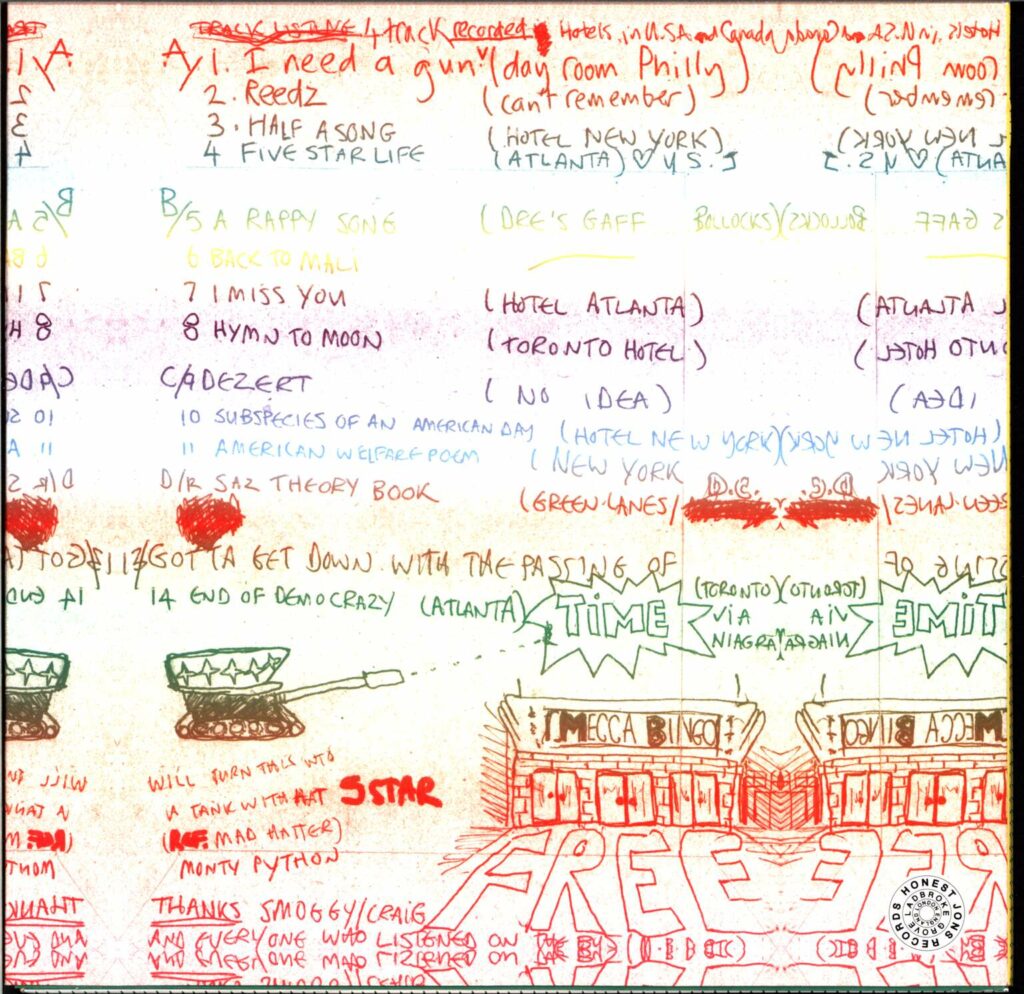 TRACK LISTING 4 track recorded Hotels in U.S.A and Canada
A/1. I need a gun (day room Philly)
2. Reedz (can't remember)
3. HALF A SONG (HOTEL NEW YORK)
4 FIVE STAR LIFE (ATLANTA) ♡ U S.
B/5 A RAPPY SONG (DRE'S GAFF BOLLOCKS)
6 BACK TO MALI
7 I MISS YOU (HOTEL ATLANTA)
8 HYMN TO MOON (TORONTO HOTEL)
C/9 DEZERT (NO IDEA)
10 SUBSPECIES OF AN AMERICAN DAY (HOTEL NEW YORK)
11 AMERICAN WELFARE POEM (NEW YORK
D/12 SAZ THEORY BOOK (GREEN LANES/
GOTTA GET DOWN WITH THE PASSING OF
TIME (TORONTO) VIA NIAGRA
14 END OF DEMOCRAZY (ATLANTA)
MECCA BINGO
WILL TURN THIS INTO
A TANK WITH HAT 5 STAR
(REF. MAD HATTER)
MONTY PYTHON
FREE
THANKS SMOGGY/CRAIG
AND EVERYONE WHO LISTENED ON THE
HONEST JONS RECORDS
LADBROKE GROVE
LONDON ENGLAND